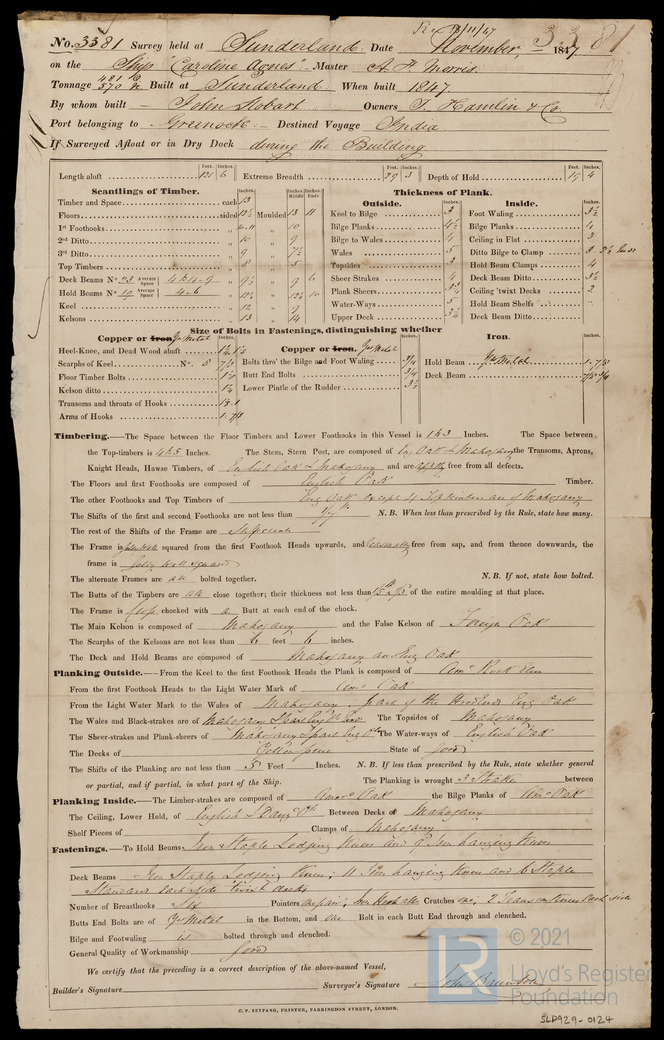 No. 3381 Survey held at Sunderland Date November, 3 1847 3381
on the Ship "Caroline Agnes" Master A. F. Morris.
Tonnage Built at Sunderland When built 1847.
By whom built John Hobart Owners T. Hamlin & Co.
Port belonging to Greenock Destined Voyage India
If Surveyed Afloat or in Dry Dock during the Building
Feet. Inches. Feet. Inches. Feet. Inches.
Length aloft 121 6 Extreme Breadth 29 3 Depth of Hold 19 4
Scantlings of Timber.
Timber and Space each 13
Floors sided Moulded 13 11
1st Foothooks 10
2nd Ditto 10 9
3rd Ditto 9 7½
Top Timbers 8 5
Deck Beams No. 23 Average Space
Hold Beams No. 19 Average Space 4-6
Keel 12
Kelsons 13 14
Thickness of Plank.
Outside.
Keel to Bilge 3
Bilge Planks 4½
Bilge to Wales 4
Wales 5
Topsides 3
Sheer Strakes 4
Plank Sheers
Water-Ways 5
Upper Deck 3½
Inside.
Foot Waling 3½
Bilge Planks 4
Ceiling in Flat 3
Ditto Bilge to Clamp 3
Hold Beam Clamps 4
Deck Beam Ditto 3½
Ceiling 'twixt Decks 2
Hold Beam Shelfs
Deck Beam Ditto
Size of Bolts in Fastenings, distinguishing whether
Copper or Iron. Y. Metal
Heel-Knee, and Dead Wood abaft
Scarphs of Keel No. 8
Floor Timber Bolts
Kelson ditto
Transoms and throats of Hooks
Arms of Hooks
Copper or Iron. Y. Metal
Bolts thro' the Bilge and Foot Waling
Butt End Bolts
Lower Pintle of the Rudder
Iron.
Hold Beam Y. Metal 1-7/8
Deck Beam
Timbering.—The Space between the Floor Timbers and Lower Foothooks in this Vessel is 1 & 3 Inches. The Space between
the Top-timbers is 4 & 5 Inches. The Stem, Stern Post, are composed of Eng Oak & Mahogany the Transoms, Aprons,
Knight Heads, Hawse Timbers, of English Oak & Mahogany and are free from all defects.
The Floors and first Foothooks are composed of English Oak Timber.
The other Foothooks and Top Timbers of Eng Oak except 4 Toptimbers are of Mahogany
The Shifts of the first and second Foothooks are not less than N.B. When less than prescribed by the Rule, state how many.
The rest of the Shifts of the Frame are
The Frame is fully well squared from the first Foothook Heads upwards, and reasonably free from sap, and from thence downwards, the
frame is fully well squared
The alternate Frames are all bolted together. N.B. If not, state how bolted.
The Butts of the Timbers are all close together; their thickness not less than of the entire moulding at that place.
The Frame is chocked with a Butt at each end of the chock.
The Main Kelson is composed of Mahogany and the False Kelson of Foreign Oak
The Scarphs of the Kelsons are not less than 6 feet 6 inches.
The Deck and Hold Beams are composed of Mahogany and Eng Oak
Planking Outside.—From the Keel to the first Foothook Heads the Plank is composed of Amn. Rock Elm
From the first Foothook Heads to the Light Water Mark of Amn Oak
From the Light Water Mark to the Wales of Mahogany & part of the Hoodends Eng Oak
The Wales and Black-strakes are of Mahogany & part Eng Oak The Topsides of Mahogany
The Sheer-strakes and Plank-sheers of Mahogany & part Eng Ok The Water-ways of English Oak
The Decks of Yellow pine State of Good
The Shifts of the Planking are not less than 5 Feet Inches. N.B. If less than prescribed by the Rule, state whether general
or partial, and if partial, in what part of the Ship. The Planking is wrought 3 Strakes between
Planking Inside.—The Limber-strakes are composed of Amn. Oak the Bilge Planks of Amn Oak
The Ceiling, Lower Hold, of English & Danzc Ok Between Decks of Mahogany
Shelf Pieces of Clamps of Mahogany
Fastenings.—To Hold Beams Iron Staple Lodging Knees and 9 Iron hanging Knees
Deck Beams Iron Staple Lodging Knees; 11 Iron hanging Knees and 6 Staple
Standard each side 'tween decks
Number of Breasthooks Six Pointers Crutches one; 2 Transom knees each side
Butts End Bolts are of Y. Metal in the Bottom, and one Bolt in each Butt End through and clenched.
Bilge and Footwaling is bolted through and clenched.
General Quality of Workmanship Good
We certify that the preceding is a correct description of the above-named Vessel,
Builder's Signature Surveyor's Signature John Brunton
C. F. SEYFANG, PRINTER, FARRINGDON STREET, LONDON.
LR © 2021
Lloyd's Register
Foundation
SLD929-0124